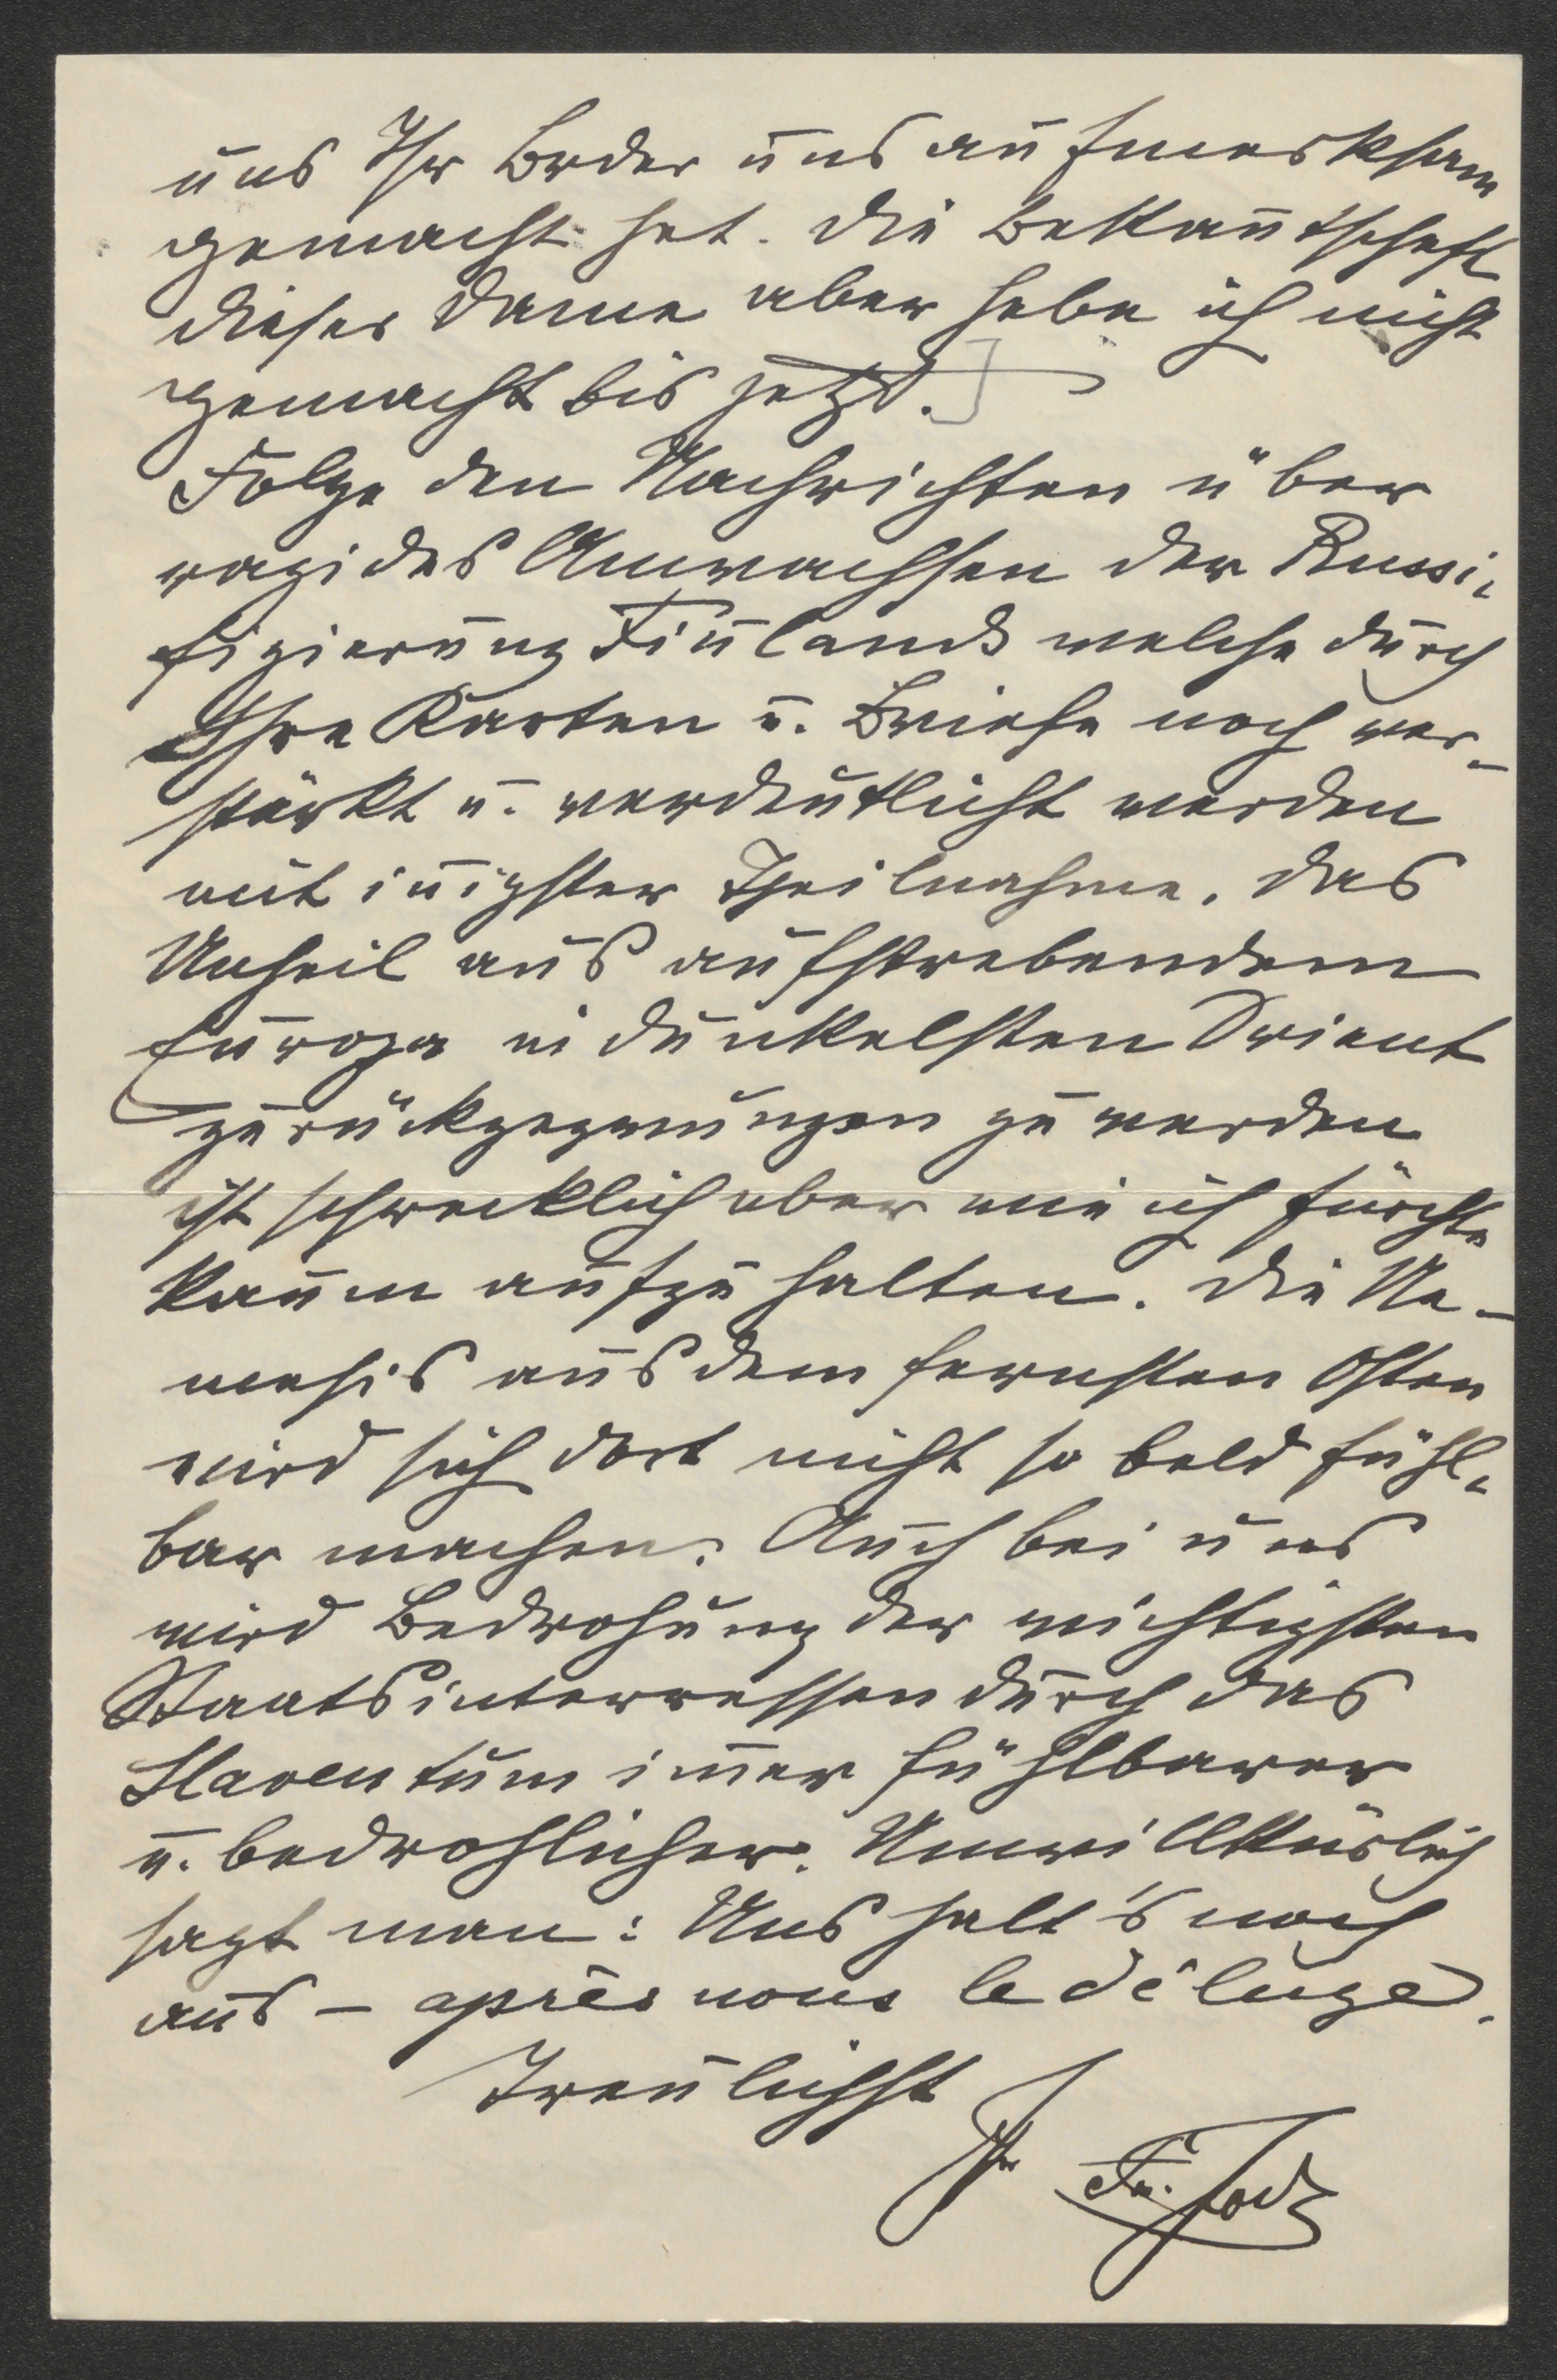 uns Ihr Bruder uns aufmerksam
gemacht hat. Die Bekanntschaft
dieser Dame aber habe ich nicht
gemacht bis jetzt.]
Folge den Nachrichten über
rapides Anwachsen der Russi-
fizierung Finlands welche durch
Ihre Karten u. Briefe noch ver-
stärkt u. verdeutlicht werden
mit innigster Theilnahme. Das
Unheil aus aufstrebendem
Europa in dunkelsten Orient
zurückgezwungen zu werden
ist schrecklich aber wie ich fürchte
kaum aufzuhalten. Die Ne-
mesis aus dem fernsten Osten
wird sich dort nicht so bald fühl-
bar machen. Auch bei uns
wird Bedrohung der wichtigsten
Staatsinterressen durch das
Slaventum immer fühlbarer
u. bedrohlicher. Unwillkürlich
sagt man: Uns halt's noch
aus – après nous le déluge.
Treulichst
Ihr Fr. Jodl